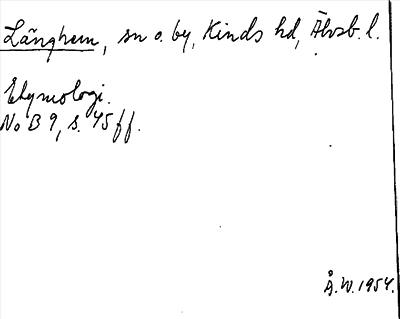 Länghem, sn o. by, Kinds hd, Älvsb. l.
Etymologi.
NoB 9, s. 45 ff.
Å.W. 1954.